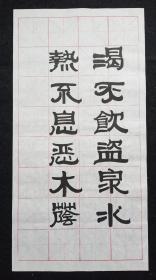 渴不飲盜泉水
熱不息惡木蔭